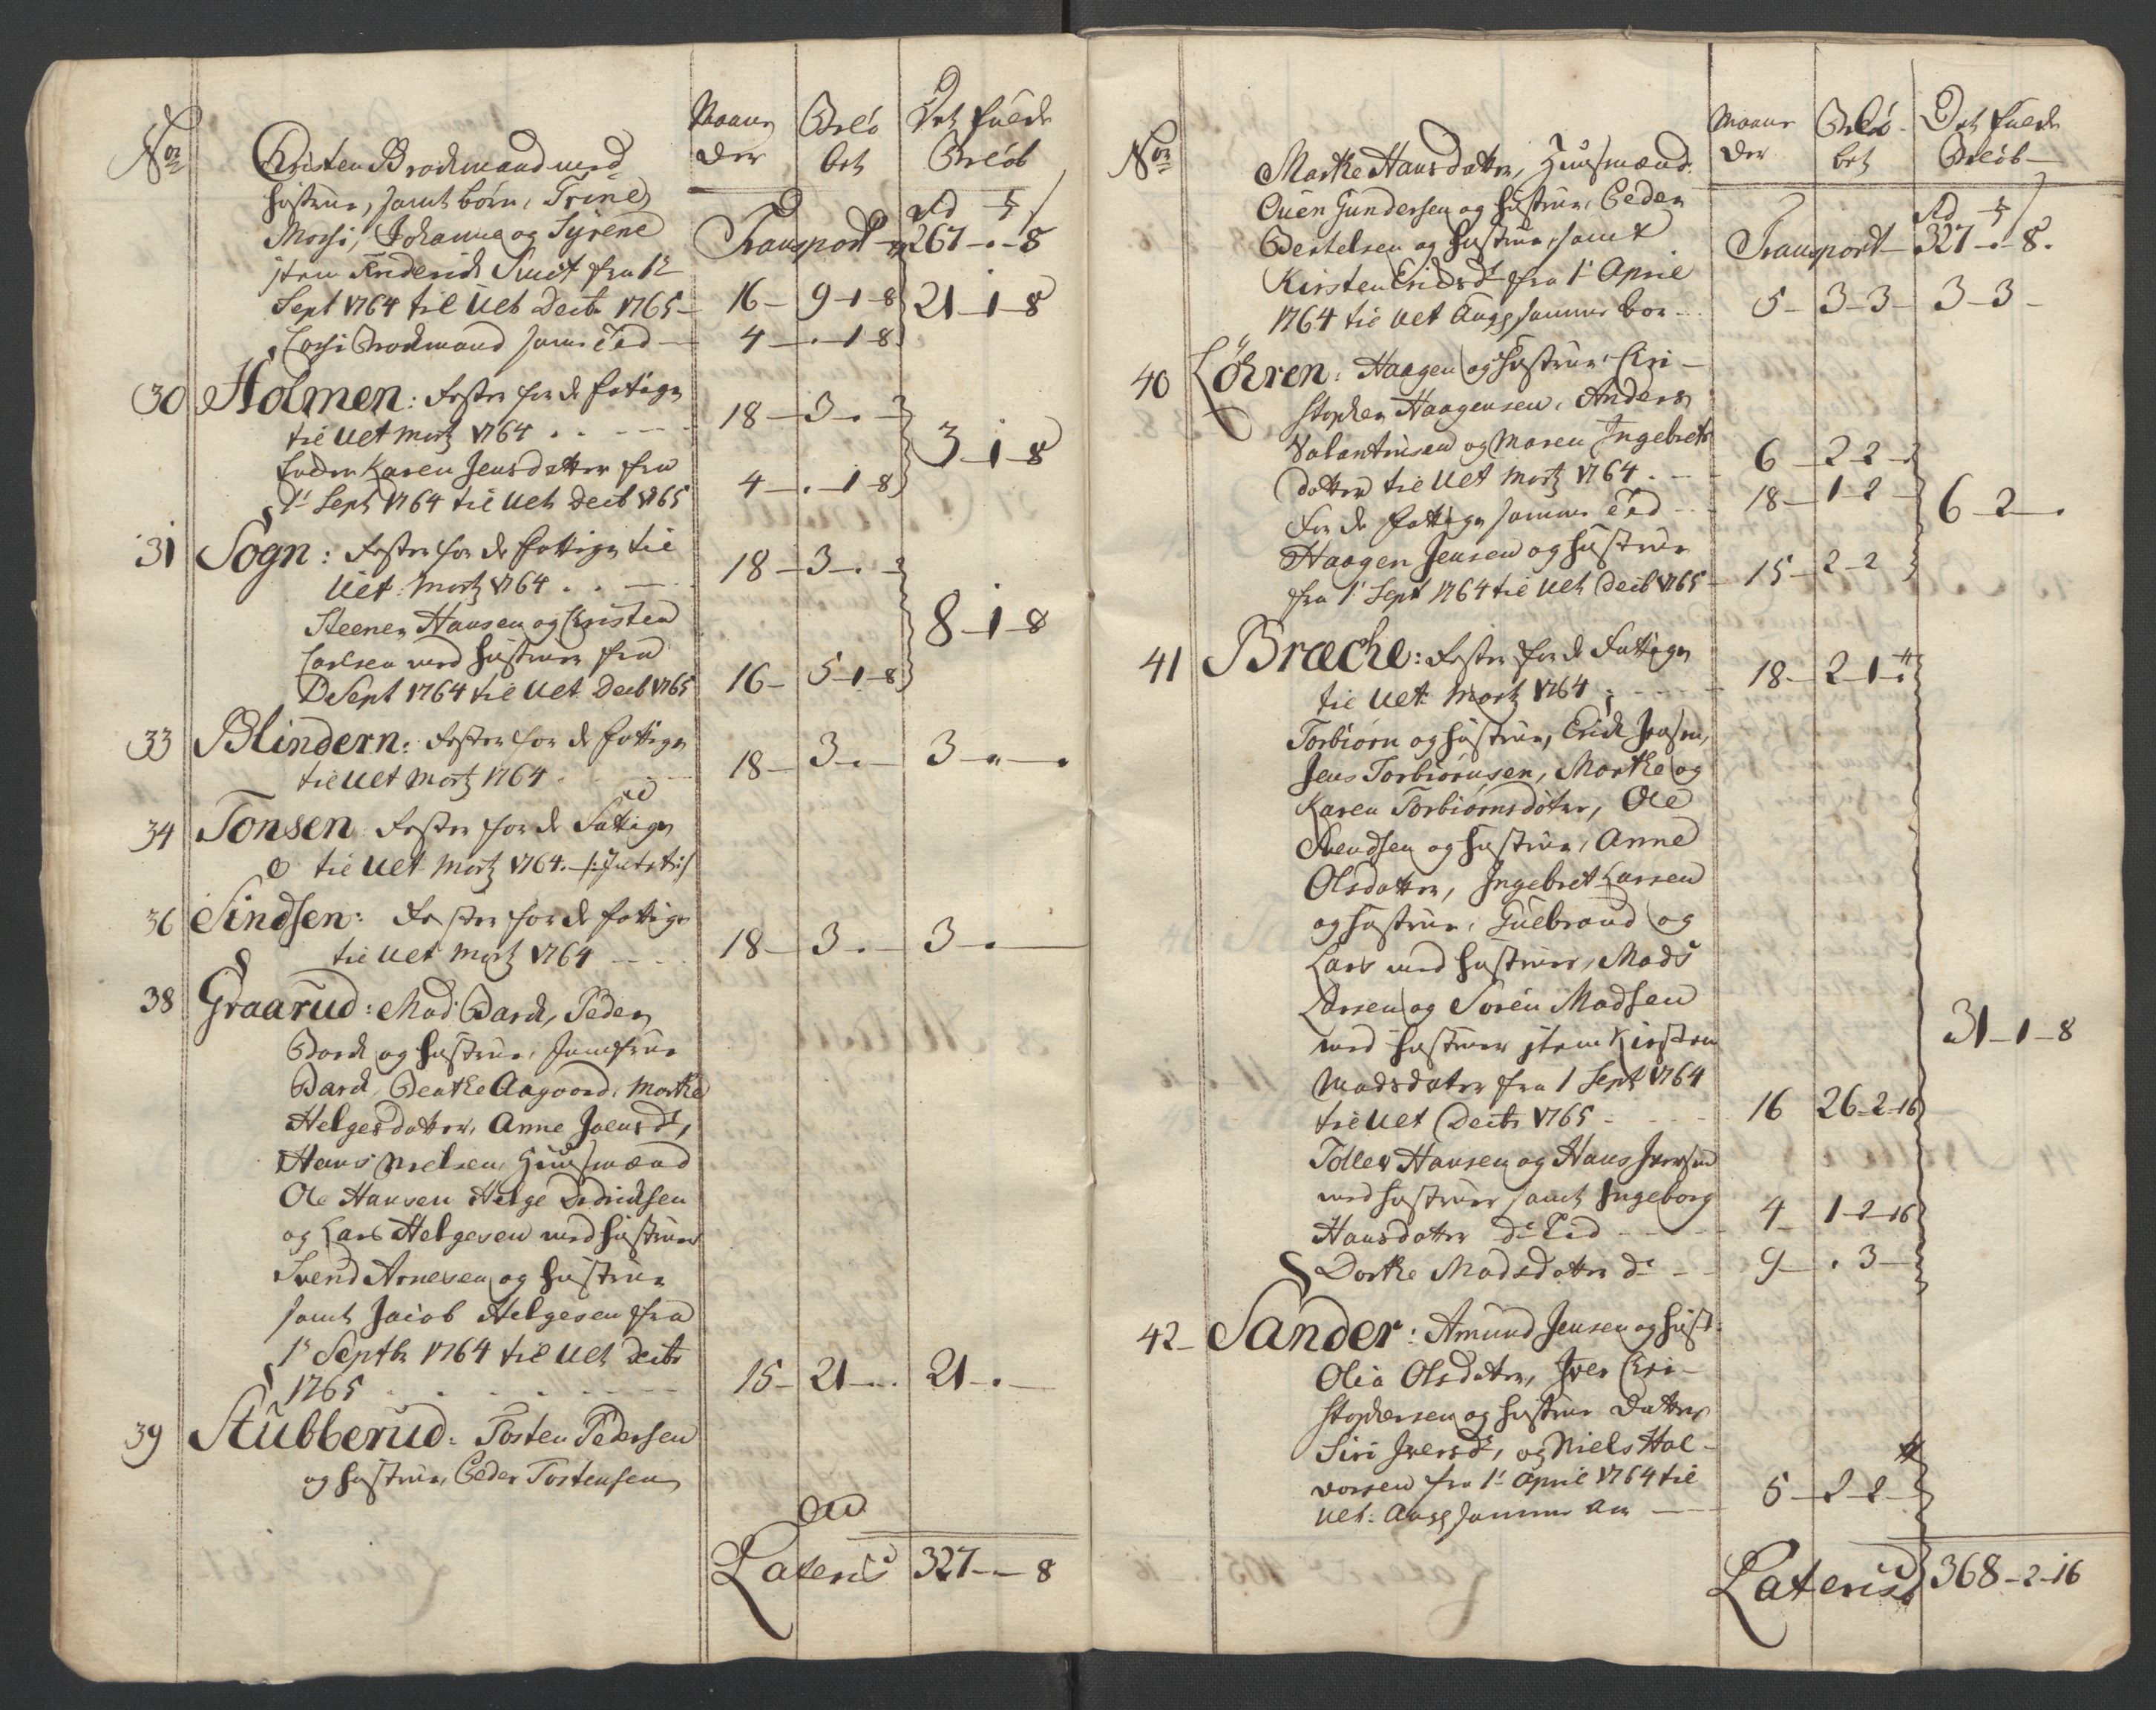 No
Maane
der
Beløb
bet
Det fulde
Beløb
Christen Brochmand med
Hustrue, samt børn, Trine
Morsi, Johanna og Syrene
item Friderich Smit fra 1e
Sept 1764 til Ult Decb 1765 — 16 — 9-1-8 21-1-8
Morsi Brochmand samme Tid — 4 — . -1-8
Rd
Transport 267-.-8
30 Holmen: Fester for de fattige
til Ult Martz 1764 . . — 18 — 3 - .
Enken Karen Jensdatter fra
1e Sept 1764 til Ult Decb 1765 4 — . -1-8 3-1-8
31 Sogn: Fester for de fattige til
Ult. Martz 1764 . . — 18 — 3 - .
Steener Hansen og Christen
Carlsen med Hustruer fra
1 Sept 1764 til Ult Decb 1765 16 — 5-1-8 8-1-8
33 Blindern: Fester for de fattige
til Ult Martz 1764 . 18 — 3 - . — 3 - . - .
34 Tonsen: Fester for de Fattige
til Ult Martz 1764. — /: Intet :/
36 Sindsen: Fester for de fattige
til Ult Martz 1764 — 18 — 3 . — 3 - . —
38 Graarud: Mad. Bardt, Peder
Bardt og Hustrue, Jomfrue
Bardt, Beathe Aagaard, Marthe
Helgesdatter, Anne Joensdr,
Hans Nielsen, Huusmænd
Ole Hansen Helge Didrichsen
og Lars Helgesen med Hustruer
Svend Arnesen og Hustrue
samt Jacob Helgesen fra
1e Septbr 1764 til Ult Decbr
1765 . . . . . — 15 — 21 - . . 21 - . —
39 Stubberud: Tosten Pedersen
og Hustrue, Peder Tostensen
Lateris 327-.-8
No
Maane
der
Beløb
bet
Det fulde
Beløb
Marthe Hansdatter, Huusmænd
Ouen Gundersen og Hustrue, Peder
Bertelsen og Hustrue, samt
Kirsten Erichsdr fra 1e April
1764 til Ult Aug samme Aar — 5 — 3-3 — 3-3 —
Rd
Transport — 327-.-8.
40 Löhren: Haagen og Hustrue Chri-
stopher Haagensen, Anders
Valentinsen og Maren Ingebrets
datter til Ult Martz 1764 . — 6 — 2-2 —
For de fattige samme Tid — 18 — 1-2 — 6-2-.
Haagen Jensen og Hustrue
fra 1e Sept 1764 til Ult Decb 1765 — 15 — 2-2
41 Bræche: Fester for de Fattige
til Ult Martz 1764 . — 18 — 2-1-.
Torbiørn og Hustrue, Erich Jensen,
Jens Torbiørnsen, Marthe og
Karen Torbiørnsdøtre, Ole
Svendsen og Hustrue, Anne
Olsdatter, Ingebret Larsen
og Hustrue, Gulbrand og
Lars med Hustruer, Mads
Larsen og Soren Madsen
med Hustruer item Kirsten
Madsdatter fra 1 Sept 1764
til Ult Decbr 1765 — 16 26-2-16 31-1-8
Tollev Hansen og Hans Iversen
med Hustruer samt Ingeborg
Hansdatter do Tid — 4 — 1-2-16
Dorthe Madsdatter do — 9 — . 3 —
42 — Sander: Amund Jensen og Hust:
Olia Olsdatter, Iver Chri-
stophersen og Hustrue Datter
Siri Iversdr, og Niels Hal-
vorsen fra 1e April 1764 til
Ult. Aug samme Aar — 5 — 2-2 —
Lateris 368-2-16